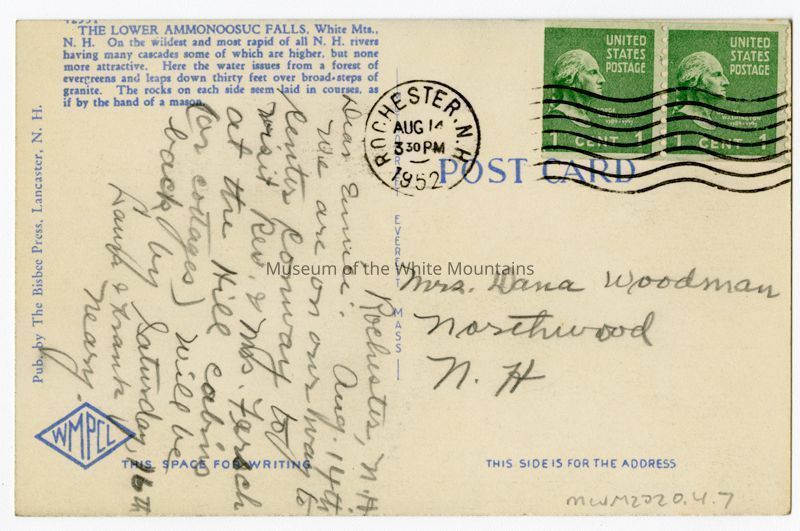 THE LOWER AMMONOOSUC FALLS, White Mts.,
N. H. On the wildest and most rapid of all N. H. rivers
having many cascades some of which are higher, but none
more attractive. Here the water issues from a forest of
evergreens and leaps down thirty feet over broad steps of
granite. The rocks on each side seem laid in courses, as
if by the hand of a mason.
Pub. by The Bisbee Press, Lancaster, N. H.
WMPCL
THIS SPACE FOR WRITING
Rochester, N.H.
Aug. 14th
Dear Eunice:
We are on our way to
Center Conway to
visit Rev. & Mrs.
at the Hill cabins
(or cottages) will be
back by Saturday 16th
& Frank
Neary.
EVERETT MASS
ROCHESTER, N.H.
AUG 14
3 30 PM
1952
UNITED
STATES
POSTAGE
1 CENT 1
UNITED
STATES
POSTAGE
WASHINGTON
1 CENT 1
POST CARD
Mrs. Dana Woodman
Northwood
N. H
THIS SIDE IS FOR THE ADDRESS
MWM2020.4.7
Museum of the White Mountains